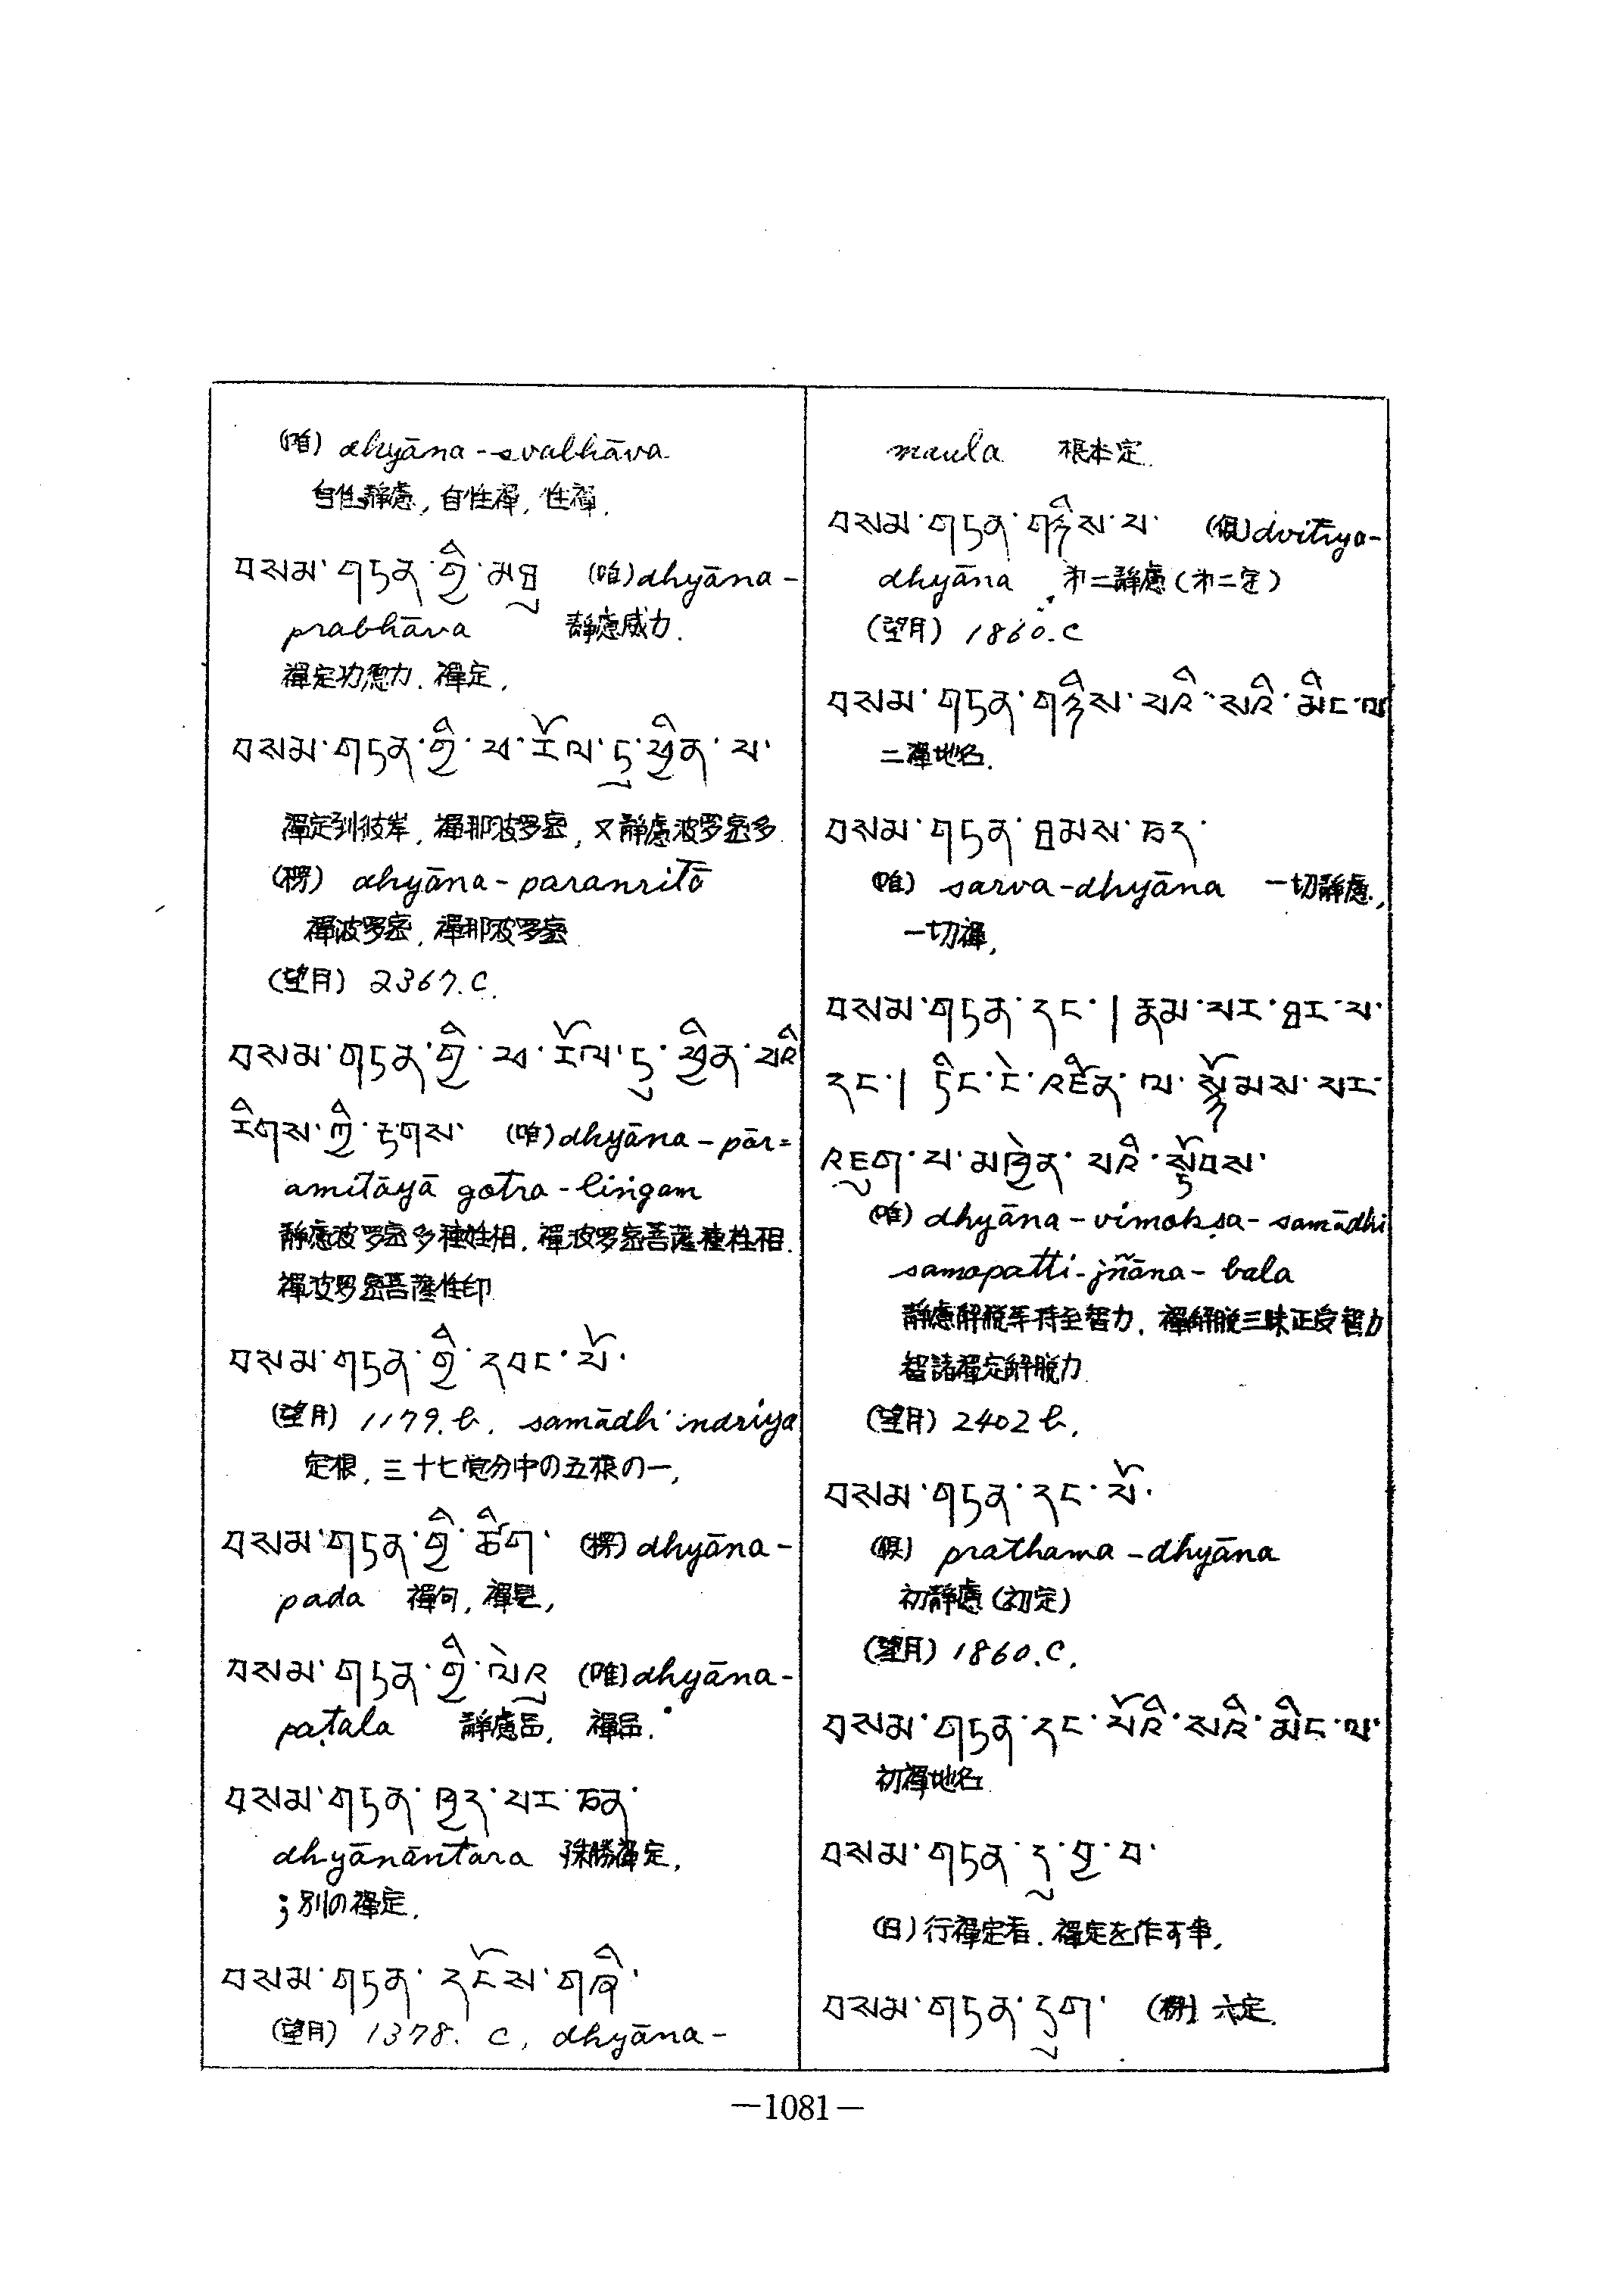 (唯) dhyāna-svabhāva
自性靜慮, 自性禪, 性禪.
བསམ་གཏན་གྱི་མཐུ (唯) dhyāna-
prabhāva 靜慮威力.
禪定功德力. 禪定.
བསམ་གཏན་གྱི་ཕ་རོལ་ཏུ་ཕྱིན་པ་
禪定到彼岸, 禪那波罗密, 又靜慮波罗密多.
(楞) dhyāna-paranritā
禪波罗密, 禪那波罗密
(望月) 2367.c.
བསམ་གཏན་གྱི་ཕ་རོལ་ཏུ་ཕྱིན་པའི
རིགས་ཀྱི་རྟགས་ (唯) dhyāna-pār=
amitāyā gotra-liṅgam
靜慮波罗密多種姓相, 禪波罗密菩薩種性相.
禪波罗密菩薩性印
བསམ་གཏན་གྱི་དབང་པོ་
(望月) 1179.b. samādh'indriya
定根, 三十七覚分中の五根の一,
བསམ་གཏན་གྱི་ཚིག་ (楞) dhyāna-
pada 禪句, 禪足,
བསམ་གཏན་གྱི་ལེའུ (唯) dhyāna-
paṭala 靜慮品, 禪品.
བསམ་གཏན་ཁྱད་པར་ཅན་
dhyānāntara 殊勝禪定,
; 別の禪定.
བསམ་གཏན་དངོས་གཞི་
(望月) 1378. c, dhyāna-
maula 根本定.
བསམ་གཏན་གཉིས་པ་ (倶) dvitīya-
dhyāna 㐧二靜慮 (㐧二定)
(望月) 1860.c
བསམ་གཏན་གཉིས་པའི་སའི་མིང་ལ
二禪地名.
བསམ་གཏན་ཐམས་ཅད་
(唯) sarva-dhyāna 一切靜慮,
一切禪,
བསམ་གཏན་དང་། རྣམ་པར་ཐར་པ་
དང་། ཏིང་ངེ་འཛིན་ལ་སྙོམས་པར་
འཇུག་པ་མཁྱེན་པའི་སྟོབས་
(唯) dhyāna-vimokṣa-samādhi
samapatti-jñāna-bala
靜慮解脱等持至智力, 禪解脱三昧正受智力
智諸禪定解脱力
(望月) 2402 b,
བསམ་གཏན་དང་པོ་
(倶) prathama-dhyāna
初靜慮 (初定)
(望月) 1860.c.
བསམ་གཏན་དང་པོའི་སའི་མིང་ལ་
初禪地名
བསམ་གཏན་དུ་བྱ་བ་
(日) 行禪定者. 禪定を作す事,
བསམ་གཏན་དྲུག་ (楞) 六定.
—1081—